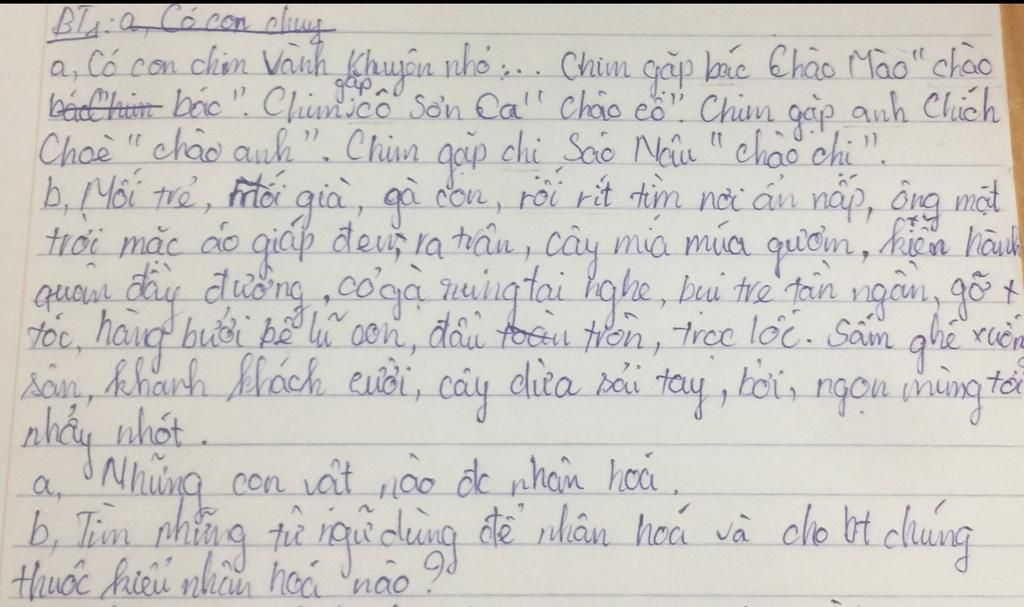 BT1: a, Có con chung
a, Có con chim Vành Khuyên nhỏ:... Chim gặp bác Chào Mào "chào
bác Chim bác". Chim gặp cô Sơn Ca "chào cô". Chim gặp anh Chích
Choè "chào anh". Chim gặp chị Sáo Nâu "chào chị".
b, Mối trẻ, mối già, gà con, rối rít tìm nơi ẩn nấp, ông mặt
trời mặc áo giáp đen, ra trận, cây mía múa gươm, kiến hành
quân đầy đường, cỏ gà rung tai nghe, bụi tre tần ngần, gỡ
tóc, hàng bưởi bế lũ con, đầu tròn, trọc lốc. Sấm ghé xuống
sân, khanh khách cười, cây dừa sải tay, bơi, ngọn mùng tơi
nhảy nhót.
a, Những con vật nào đc nhân hoá.
b, Tìm những từ ngữ dùng để nhân hoá và cho bt chúng
thuộc kiểu nhân hoá nào?